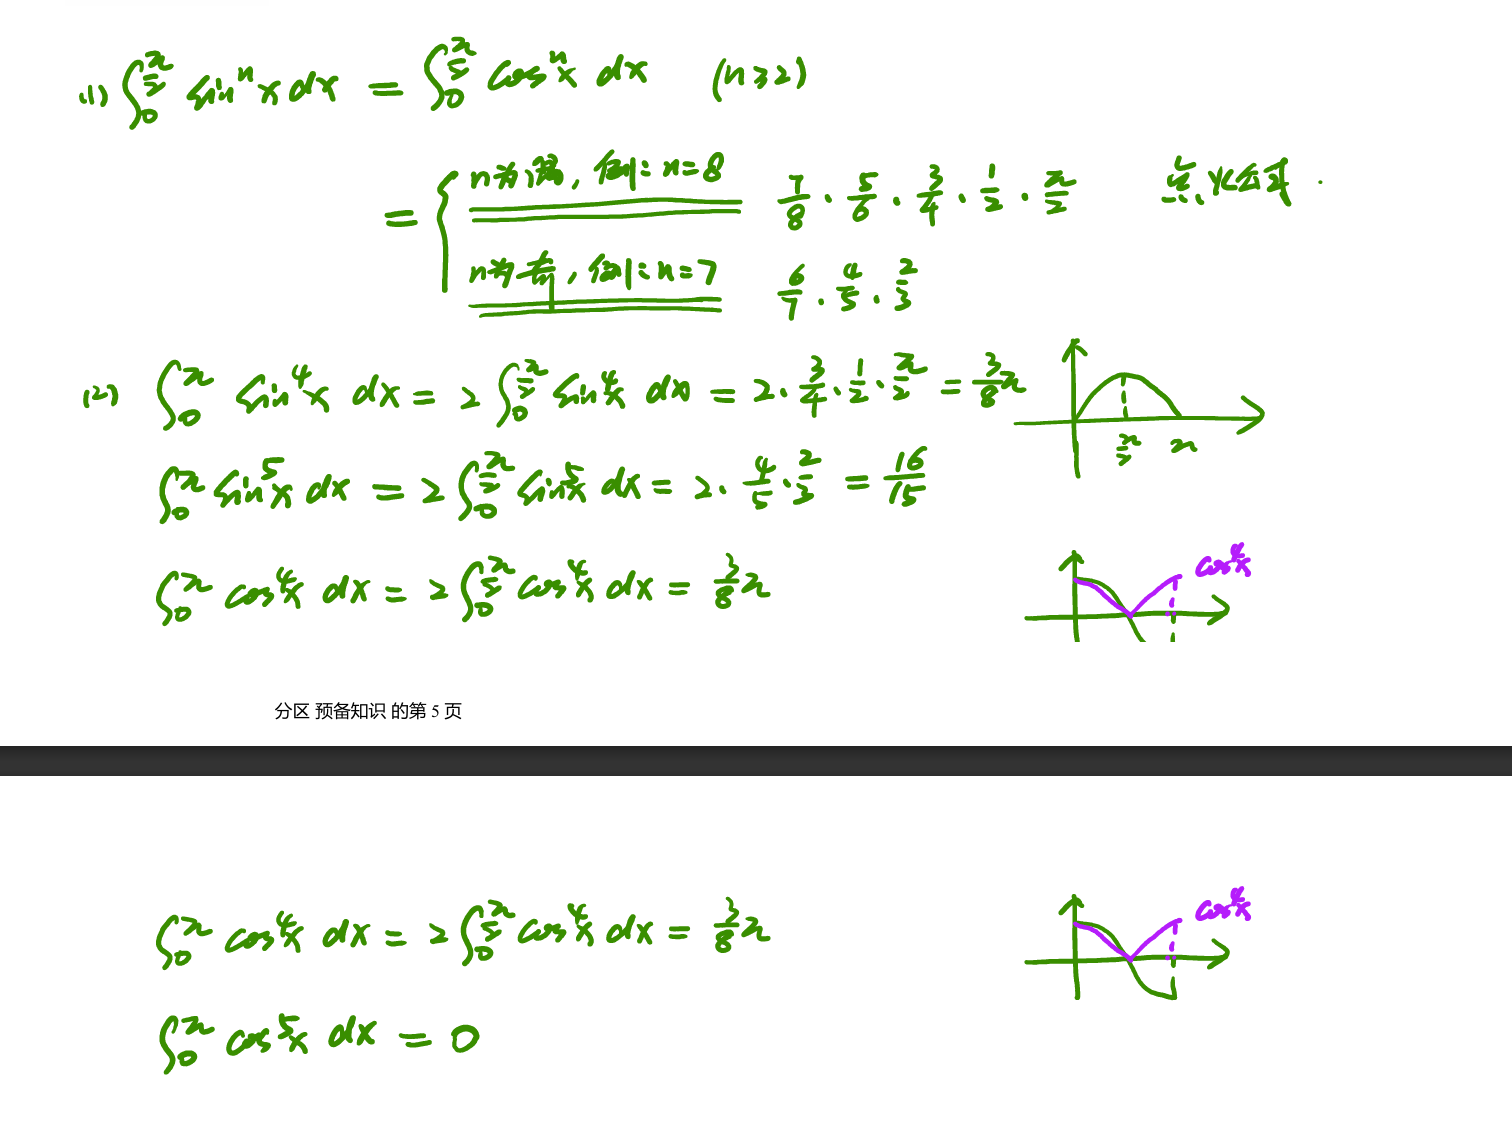 (1) ∫₀^(π/2) sinⁿx dx = ∫₀^(π/2) cosⁿx dx (n≥2)
= { n为偶, 例: n=8 7/8 · 5/6 · 3/4 · 1/2 · π/2 点火公式.
n为奇, 例: n=7 6/7 · 4/5 · 2/3
(2) ∫₀^π sin⁴x dx = 2 ∫₀^(π/2) sin⁴x dx = 2 · 3/4 · 1/2 · π/2 = 3/8 π
π/2 π
∫₀^π sin⁵x dx = 2 ∫₀^(π/2) sin⁵x dx = 2 · 4/5 · 2/3 = 16/15
∫₀^π cos⁴x dx = 2 ∫₀^(π/2) cos⁴x dx = 3/8 π cos⁴x
分区 预备知识 的第 5 页
∫₀^π cos⁴x dx = 2 ∫₀^(π/2) cos⁴x dx = 3/8 π cos⁴x
∫₀^π cos⁵x dx = 0